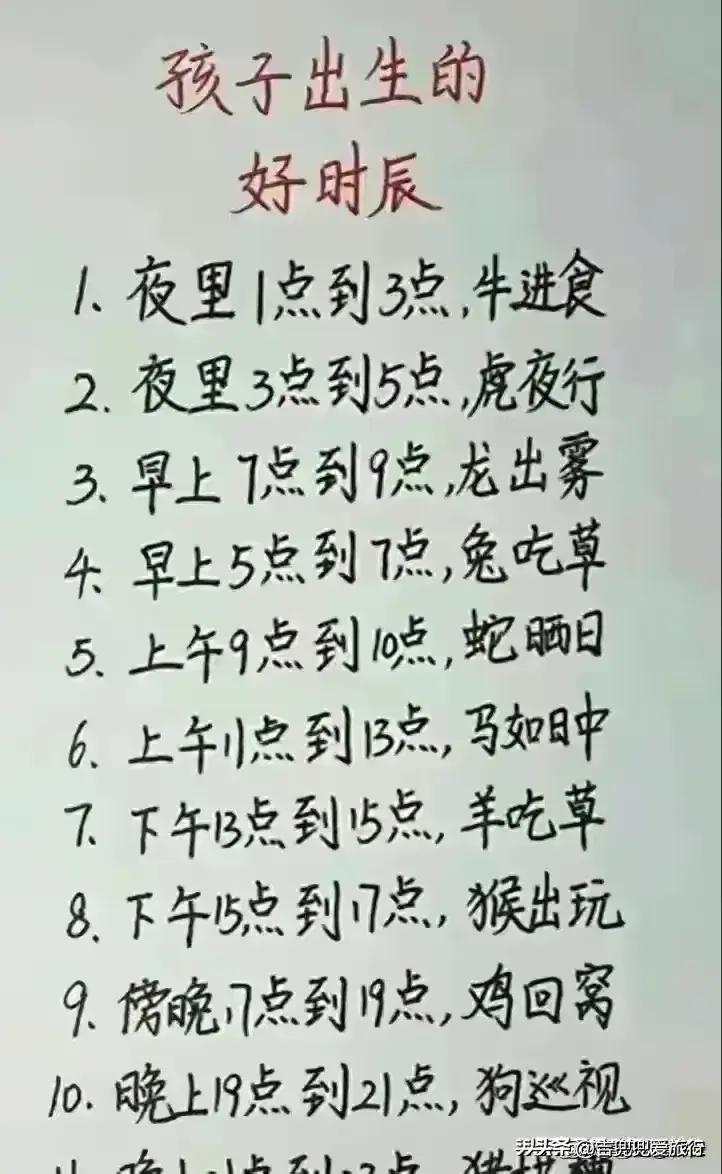 孩子出生的
好时辰
1. 夜里1点到3点,牛进食
2. 夜里3点到5点,虎夜行
3. 早上7点到9点,龙出雾
4. 早上5点到7点,兔吃草
5. 上午9点到10点,蛇晒日
6. 上午11点到13点,马如日中
7. 下午13点到15点,羊吃草
8. 下午15点到17点,猴出玩
9. 傍晚17点到19点,鸡回窝
10. 晚上19点到21点,狗巡视
兜兜爱旅行